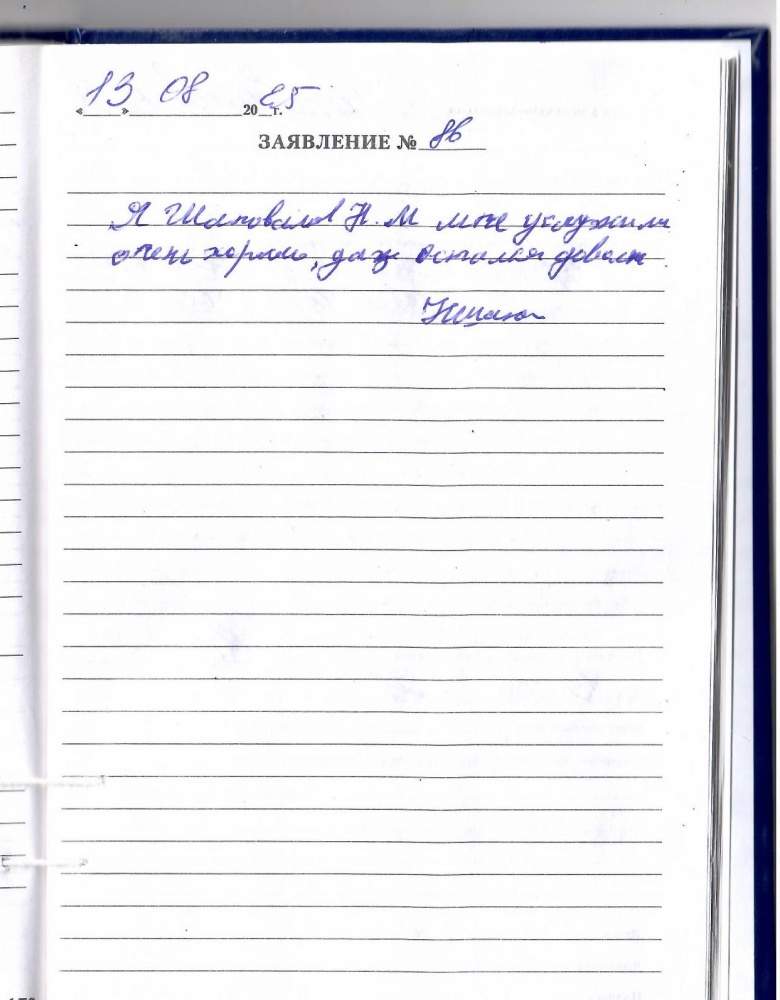 «13» 08 2025 г.
ЗАЯВЛЕНИЕ № 86
Я Шаповалов Н. М мне услужили
очень хорошо, даж остался доволен